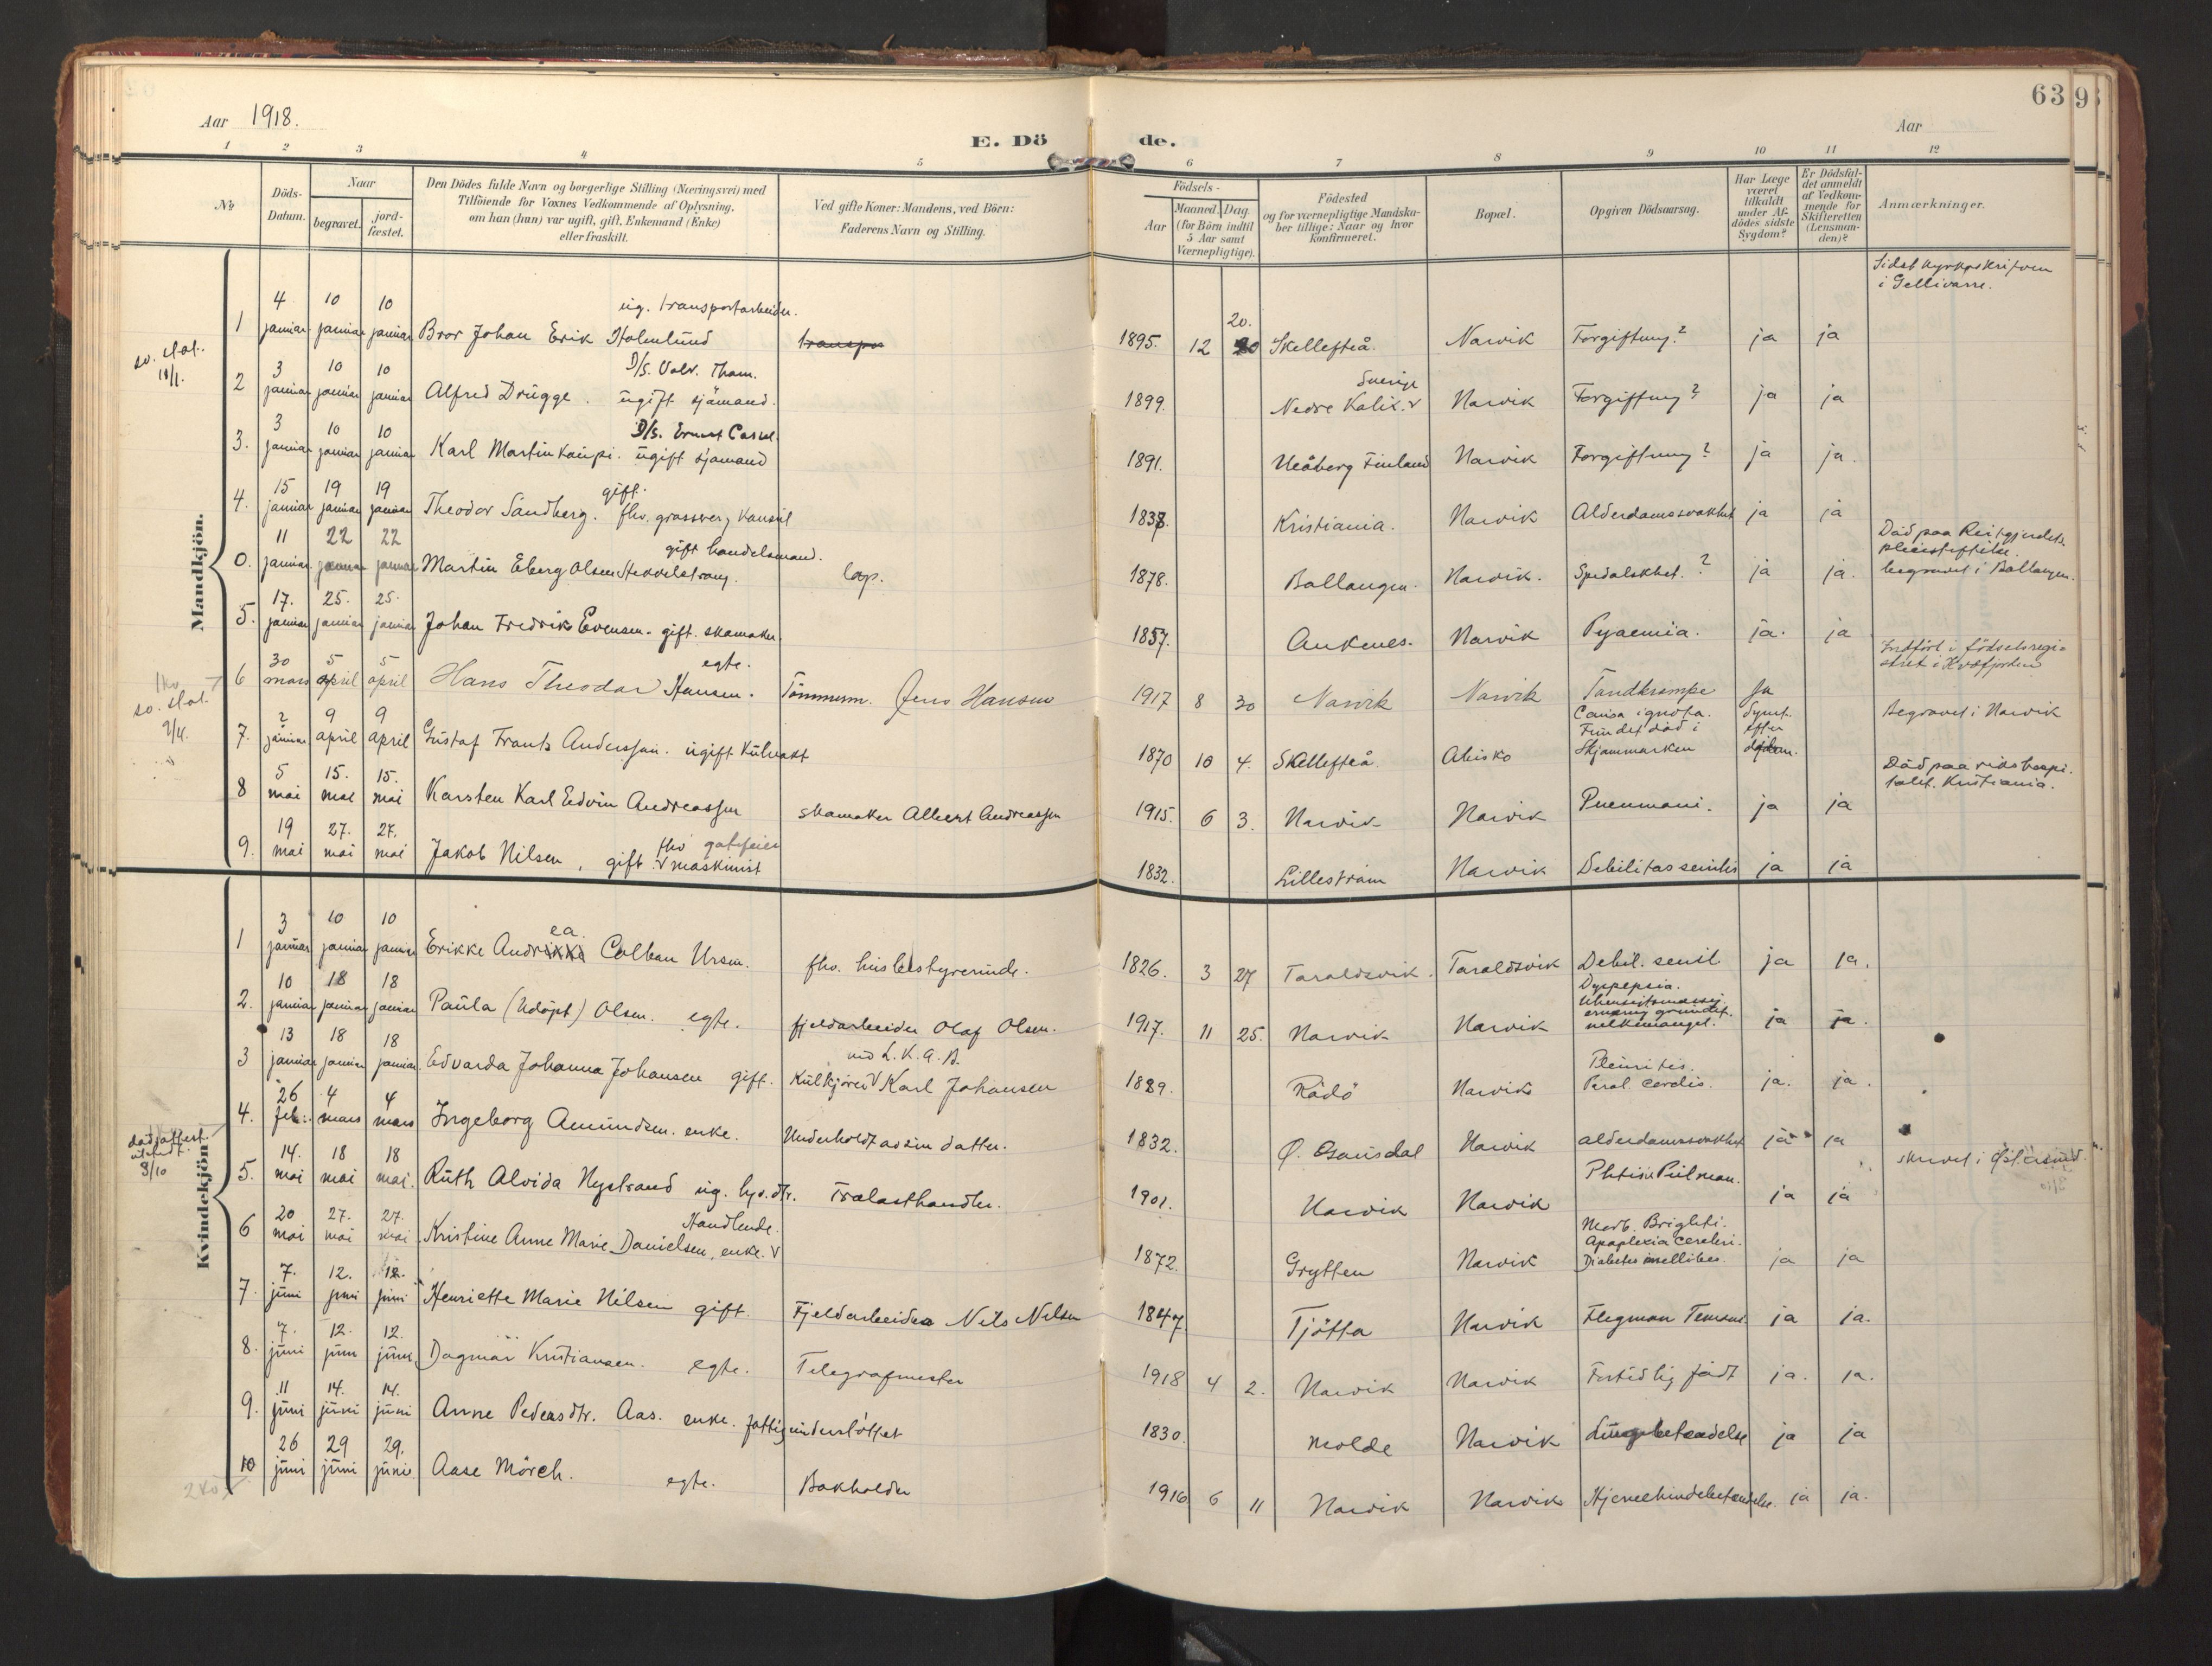 63
Aar 1918.
E. Döde.
Aar
1 2 3 4 5 6 7 8 9 10 11 12
No
Döds-Datum.
Naar
begravet.
jord-fæstet.
Den Dödes fulde Navn og borgerlige Stilling (Næringsvei) med
Tilföiende for Voxnes Vedkommende af Oplysning,
om han (hun) var ugift, gift, Enkemand (Enke)
eller fraskilt.
Ved gifte Koner: Mandens, ved Börn:
Faderens Navn og Stilling.
Födsels-
Aar
Maaned. Dag.
(for Börn indtil
5 Aar samt
Værnepligtige).
Födested
og for værnepligtige Mandska-
ber tillige: Naar og hvor
konfirmeret.
Bopæl.
Opgiven Dödsaarsag.
Har Læge
været
tilkaldt
under Af-
dödes sidste
Sygdom?
Er Dödsfal-
det anmeldt
af Vedkom-
mende for
Skifteretten
(Lensman-
den)?
Anmærkninger.
Mandkjön.
so. stat. 10/1.
1 4 januar 10 januar 10 januar Bror Johan Erik Holmlund ug. transportarbeider. 1895. 12 20. Skellefteå. Narvik Forgiftning? ja ja i Gellivarre.
2 3 januar 10 januar 10 januar Alfred Drugge. ugift sjömand. D/S. Valr. Tham. 1899. Nedre Kalix. Sverige Narvik Forgiftning? ja ja
3. 3 januar 10 januar 10 januar Karl Martin Kaupi. ugift sjömand D/S. Ernest Cassel. 1891. Uleåberg Finland Narvik Forgiftning? ja ja.
4. 15 januar 19 januar 19 januar Theodor Sandberg. gift. fhv. grosserer, konsul 1837. Kristiania. Narvik Alderdomssvakhet ja ja
0. 11 januar 22 januar 22 januar Martin Eberg Olsen gift handelsmand. lap. 1878. Ballangen. Narvik. Spedalskhet.? ja ja. Död paa Reitgjerdets pleiestiftelse. begravet i Ballangen.
5. 17. januar 25. januar 25. januar Johan Fredrik Evensen. gift. skomaker. 1857. Ankenes. Narvik Pyaemia. ja. ja
6 30 mars 5 april 5 april Hans Theodor Hansen. egte. Tömmerm. Jens Hansen 1917 8 30 Narvik Narvik Tandkrampe Ja Indfört i födselsregi-stret i Kvæfjorden
so. stat. 9/4.
7. 2 januar 9 april 9 april Gustaf Frants Andersson. ugift 1870 10 4. Skellefteå Abisko Causa ignota. Fundet död i Skjommarken Synt. efter döden. Begravet i Narvik
8 5 mai 15. mai 15. mai Karsten Karl Edvin Andreassen skomaker Albert Andreassen 1915. 6 3. Narvik Narvik Pneumoni. ja ja Död paa rikshospi-talet. Kristiania.
9. 19 mai 27. mai 27. mai Jakob Nilsen, gift. maskinist fhv 1832. Lilleström Narvik Debilitas senilis ja ja
Kvindekjön
1 3 januar 10 januar 10 januar Erikke Andrea Colban Ursin. fhv. husbestyrerinde. 1826. 3 27 Taraldsvik. Taraldsvik Debil. senil ja ja.
2. 10 januar 18 januar 18 januar Paula (Udöpt) Olsen. egte. fjeldarbeider Olaf Olsen. 1917. 11 25. Narvik Narvik Dyspepsia. Uhensigtsmæssig ernæring grundet melkemangel. ja ja.
3 13 januar 18 januar 18 januar Edvarda Johanna Johansen gift. Kulkjörer Karl Johansen ved L.K.A.B. 1889. Rödö Narvik Pleuritis. Paral. cordis. ja. ja.
4. 26 feb. 4 mars 4 mars Ingeborg Amundsen. enke. Underholdt av sin datter. 1832. Ö. Narvik alderdomssvakhet ja ja
dödsattest. utsendt 8/10
5. 14. mai 18 mai 18 mai. Ruth Alvida Nystrand ug. Trælasthandler. 1901. Narvik Narvik Phtisis Pulmon. ja ja skrevet i Östersund
6 20 mai 27. mai 27. mai Kristine Anne Marie Danielsen, enke. Handlende. 1872. Grytten Narvik Morb. Brighti. Apoplexia cerebri. Diabetes mellitus. ja ja
7. 7. juni 12. juni 12. juni Henriette Marie Nilsen gift. Fjeldarbeider Nils Nilsen 1847. Tjötta Narvik ja ja.
8. 7. juni 12. juni 12. juni Dagmar Kristiansen. egte. Telegrafmester 1918 4 2. Narvik Narvik Fortidlig födt ja. ja.
9. 11 juni 14. juni 14. juni Anne Pedersdtr. Aas. enke. fattigunderstöttet 1830. Molde Narvik Lungebetændelse ja ja
10 26 juni 29 juni 29. juni Aase Mörch. egte. Bokholder 1916 6 11 Narvik Narvik Hjernehindebetændelse. ja ja.